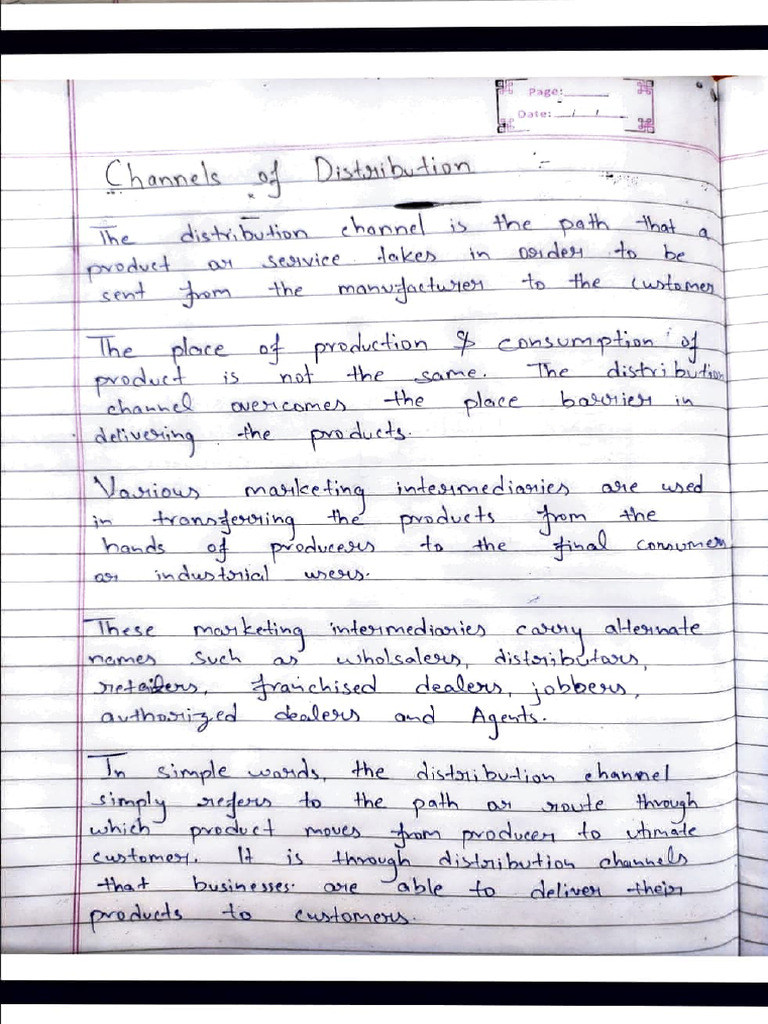 Page:
Date: / /
Channels of Distribution :-
The distribution channel is the path that a
product or service takes in order to be
sent from the manufacturer to the customer
The place of production & consumption of
product is not the same. The distribution
channel overcomes the place barrier in
delivering the products.
Various marketing intermediaries are used
in transferring the products from the
hands of producers to the final consumer
or industrial users.
These marketing intermediaries carry alternate
names such as wholsalers, distributors,
retailers, franchised dealers, jobbers,
authorized dealers and Agents.
In simple words, the distribution channel
simply refers to the path or route through
which product moves from producer to utimate
customer. It is through distribution channels
that businesses are able to deliver their
products to customers.